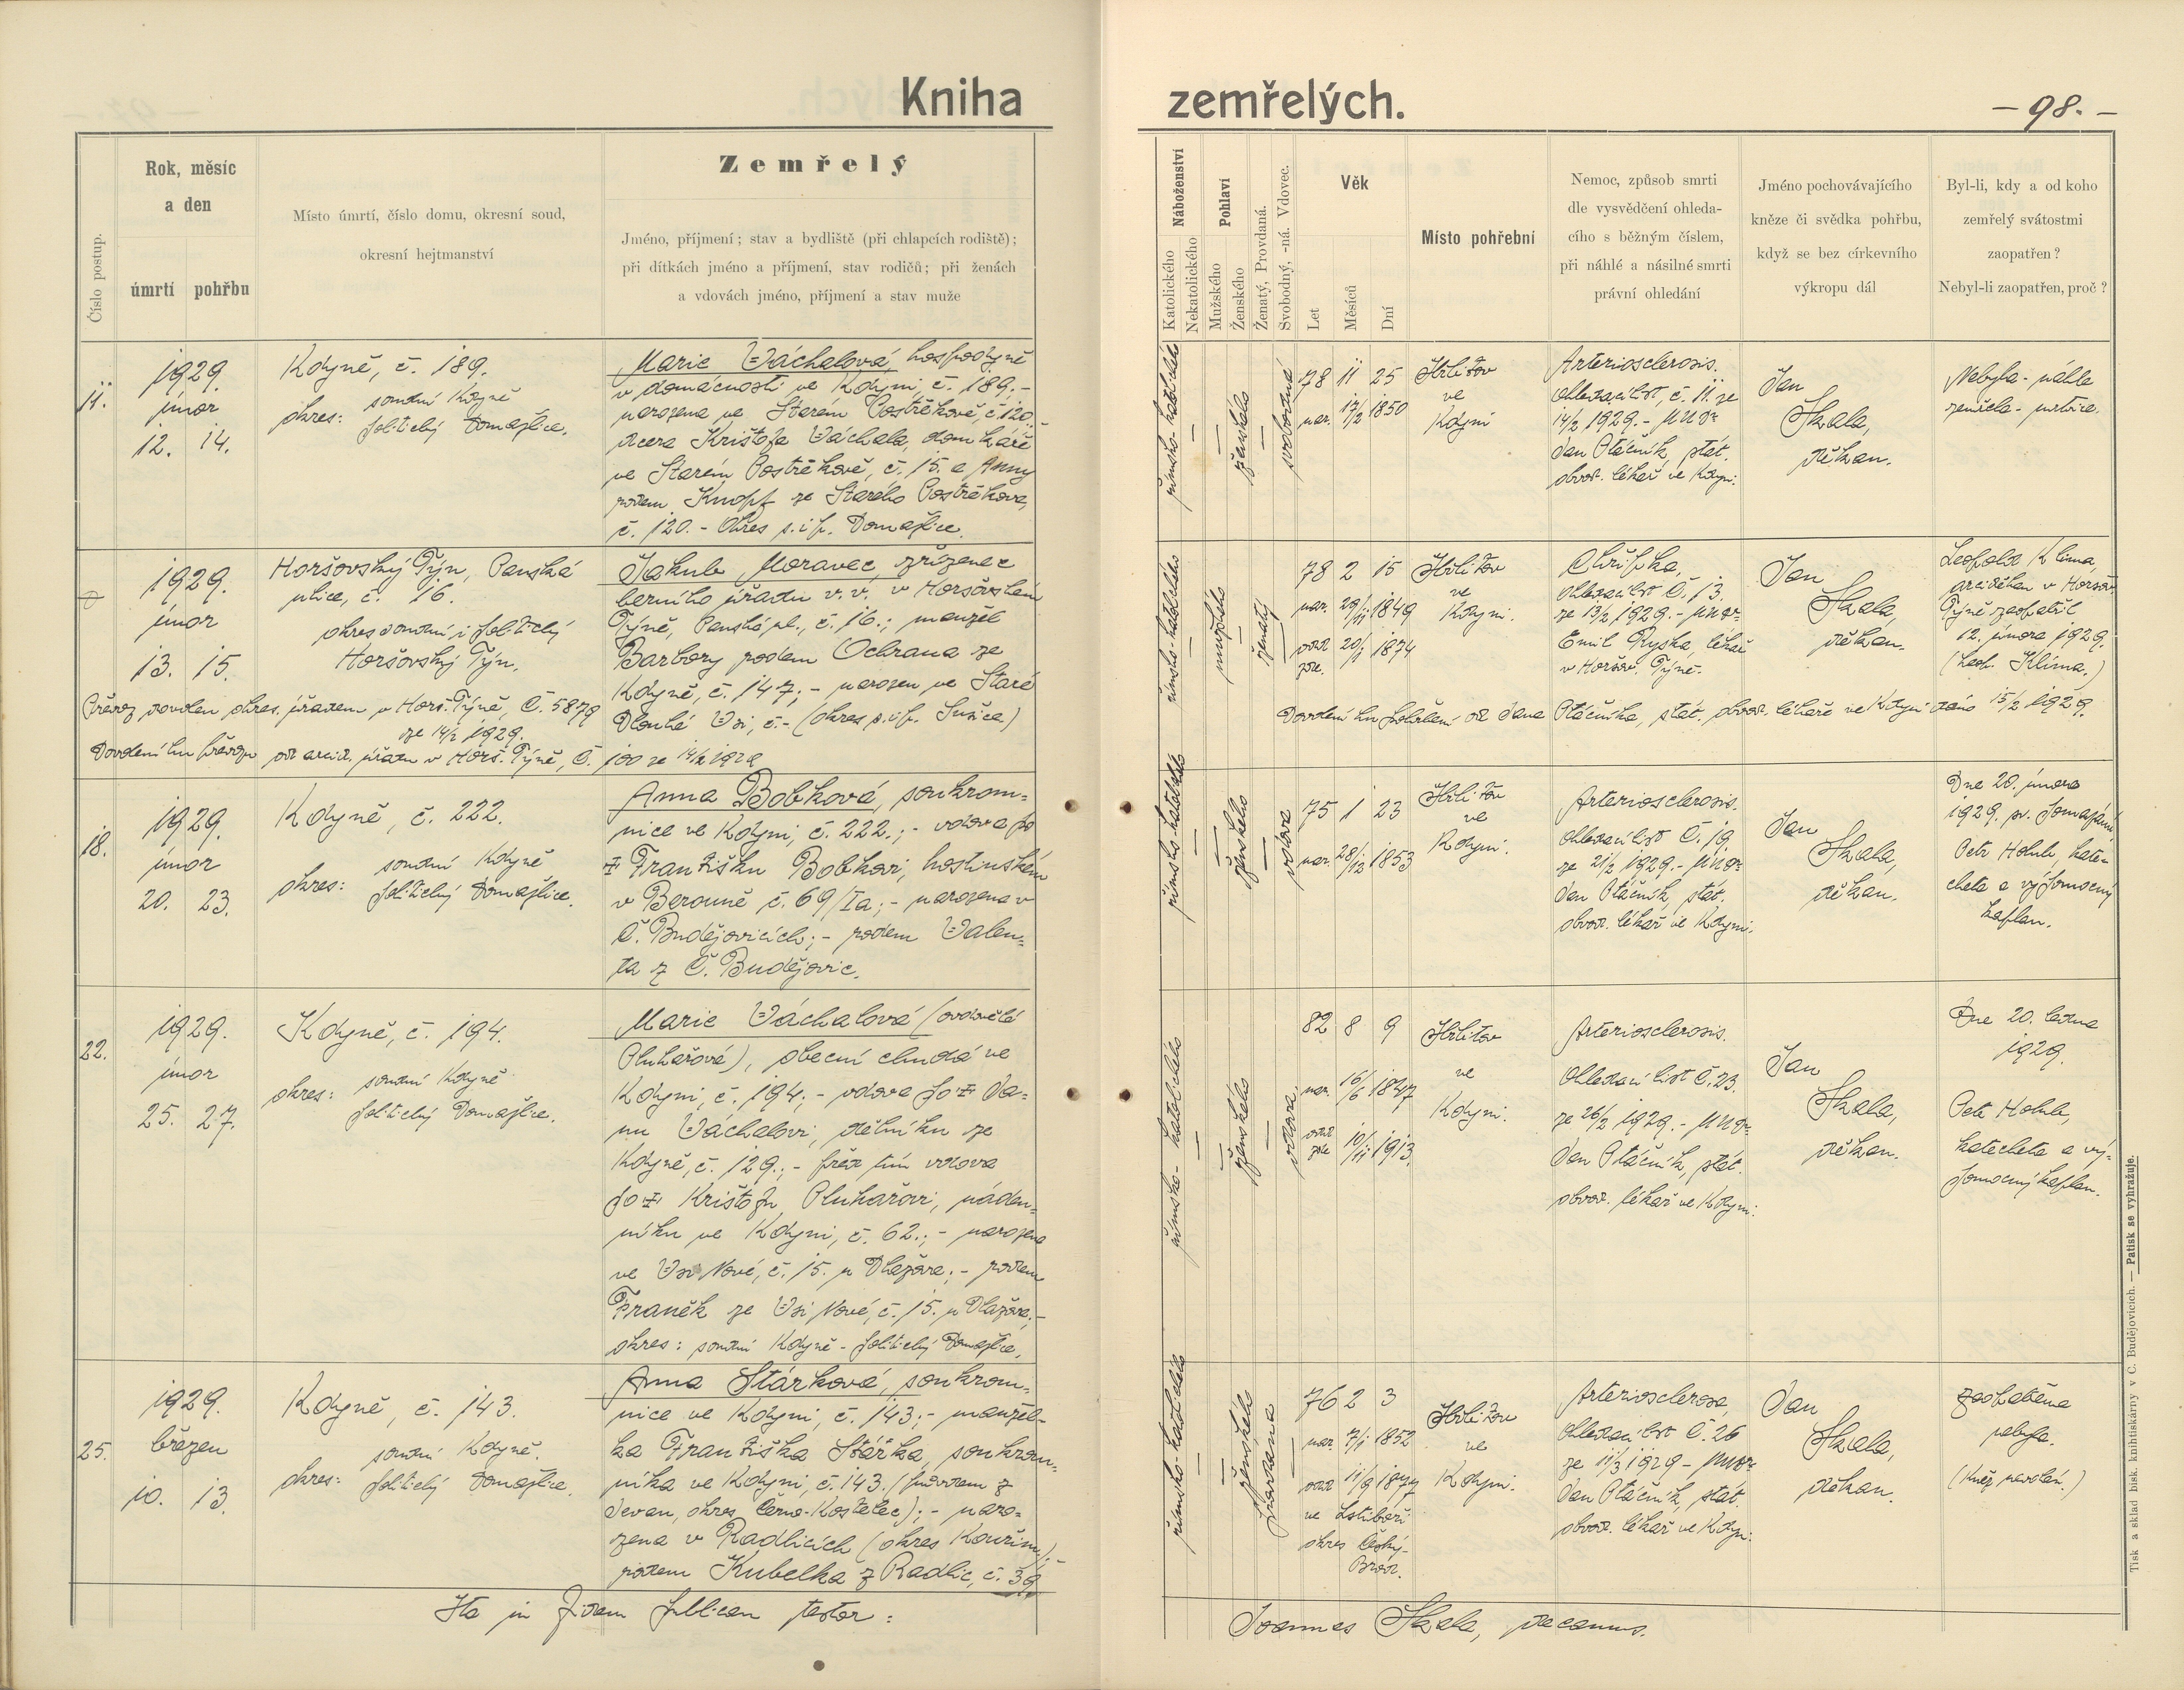 Kniha
zemřelých.
– 98. –
Číslo postup.
Rok, měsíc
a den
úmrtí pohřbu
Místo úmrtí, číslo domu, okresní soud,
okresní hejtmanství
Zemřelý
Jméno, příjmení; stav a bydliště (při chlapcích rodiště);
při dítkách jméno a příjmení, stav rodičů; při ženách
a vdovách jméno, příjmení a stav muže
Náboženství
Katolického
Nekatolického
Pohlaví
Mužského
Ženského
Ženatý, Provdaná.
Svobodný, -ná. Vdovec.
Věk
Let
Měsíců
Dní
Místo pohřební
Nemoc, způsob smrti
dle vysvědčení ohleda-
cího s běžným číslem,
při náhlé a násilné smrti
právní ohledání
Jméno pochovávajícího
kněze či svědka pohřbu,
když se bez církevního
výkropu dál
Byl-li, kdy a od koho
zemřelý svátostmi
zaopatřen?
Nebyl-li zaopatřen, proč?
11.
1929.
únor
12. 14.
Kdyně, č. 189.
okres: soudní Kdyně
politický Domažlice.
Marie Váchalová, hospodyně
v domácnosti ve Kdyni, č. 189.-
narozena ve Starém Postřekově, č. 120.
dcera Krištofa Váchala, domkáře
ve Starém Postřekově, č. 15. a Anny
rodem Knopf ze Starého Postřekova,
č. 120.- Okres s. i p. Domažlice.
římsko-katolického
ženského
svobodná
78 11 25
nar. 17/2 1850
Hřbitov
ve
Kdyni
Arteriosclerosis.
Ohledací list, č. 11. ze
14/2 1929.- MUDr
Jan Ptáčník, stát.
obvod. lékař ve Kdyni.
Jan
Skala,
děkan.
Nebyla - náhle
zemřela - mrtvice.
1929.
únor
13. 15.
Horšovský Týn, Panská
ulice, č. 16.
okres soudní i politický
Horšovský Týn.
Jakub Moravec, zřízenec
berního úřadu v. v. v Horšovském
Týně, Panská ul., č. 16.; manžel
Barbory rodem Ochrana ze
Kdyně, č. 147; - narozen ve Staré
Dlouhé Vsi, č.- (okres s. i p. Sušice)
Převoz povolen okres. úřadem v Horš. Týně, Č. 5879
ze 14/2 1929.
Dovolení ku převozu od arcid. úřadu v Horš. Týně, Č. 100 ze 14/2 1929
římsko-katolického
mužského
ženatý
78 2 15
nar. 29/11 1849
odd. 20/1 1874
zde.
Hřbitov
ve
Kdyni.
Chřipka,
Ohledací list Č. 13.
ze 13/2 1929.- MUDr
Emil Ryska, lékař
v Horšov. Týně.
Jan
Skala,
děkan.
Leopold Klíma,
arciděkan v Horšov.
Týně zaopatřil
12. února 1929.
(Leop. Klíma.)
Dovolení ku pohřbení od Jana Ptáčníka, stát. obvod. lékaře ve Kdyni dáno 15/2 1929.
18.
1929.
únor
20. 23.
Kdyně, č. 222.
okres: soudní Kdyně
politický Domažlice.
Anna Bobková, soukrom-
nice ve Kdyni, č. 222.; - vdova po
✝ Františku Bobkovi, hostinském
v Berouně č. 69/Ia; - narozena v
Č. Budějovicích; - rodem Valen-
ta z Č. Budějovic.
římsko-katolického
ženského
vdova
75 1 23
nar. 28/12 1853
Hřbitov
ve
Kdyni.
Arteriosclerosis.
Ohledací list Č. 19.
ze 21/2 1929.- MUDr
Jan Ptáčník, stát.
obvod. lékař ve Kdyni.
Jan
Skala,
děkan.
Dne 20. února
1929. sv. pomazání
Petr Holub, kate-
cheta a výpomocný
kaplan.
22.
1929.
únor
25. 27.
Kdyně, č. 194.
okres: soudní Kdyně
politický Domažlice.
Marie Váchalová (ovdovělá
Pluhařová), obecní chudá ve
Kdyni, č. 194; - vdova po ✝ Ja-
nu Váchalovi, dělníku ze
Kdyně, č. 129.; - před tím vdova
po ✝ Krištofu Pluhařovi, náden-
níku ve Kdyni, č. 62.; - narozena
ve Vsi Nové, č. 15. u Dlažova; - rodem
Franěk ze Vsi Nové, č. 15. u Dlažova.-
okres: soudní Kdyně - politický Domažlice.
římsko-katolického
ženského
vdova
82 8 9
nar. 16/6 1847
odd. 10/11 1913.
zde
Hřbitov
ve
Kdyni.
Arteriosclerosis.
Ohledací list Č. 23.
ze 26/2 1929.- MUDr
Jan Ptáčník, stát.
obvod. lékař ve Kdyni.
Jan
Skala,
děkan.
Dne 20. ledna
1929.
Petr Holub,
katecheta a vý-
pomocný kaplan.
25.
1929.
březen
10. 13.
Kdyně, č. 143.
okres: soudní Kdyně.
politický Domažlice.
Anna Stárková, soukrom-
nice ve Kdyni, č. 143; - manžel-
ka Františka Stárka, soukrom-
níka ve Kdyni, č. 143. (původem z
Jevan, okres Černo-Kostelec); - naro-
zena v Radlicích (okres Kouřim);
rodem Kubelka z Radlic, č. 39.
římsko-katolického
ženského
provdaná
76 2 3
nar. 7/1 1852
odd. 11/9 1877
ve Lstiboři
okres Český-
Brod.
Hřbitov
ve
Kdyni.
Arteriosclerosa,
Ohledací list Č. 26
ze 11/3 1929 - MUDr
Jan Ptáčník, stát.
obvod. lékař ve Kdyni.
Jan
Skala,
děkan.
Zaopatřena
nebyla.
(Kněz nevolán.)
Ita in fidem publicam testor:
Joannes Skala, decanus.
Tisk a sklad bisk. knihtiskárny v Č. Budějovicích. — Patisk se vyhražuje.